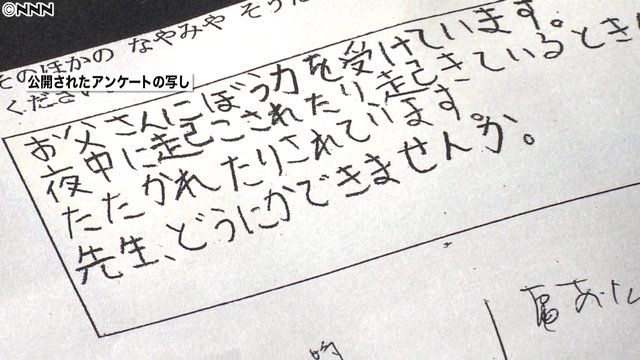 ©NNN
そのほかの なやみや そうだ
ください
公開されたアンケートの写し
お父さんにぼう力を受けています。
夜中に起こされたり、起きているときに
たたかれたりされています。
先生、どうにかできませんか。